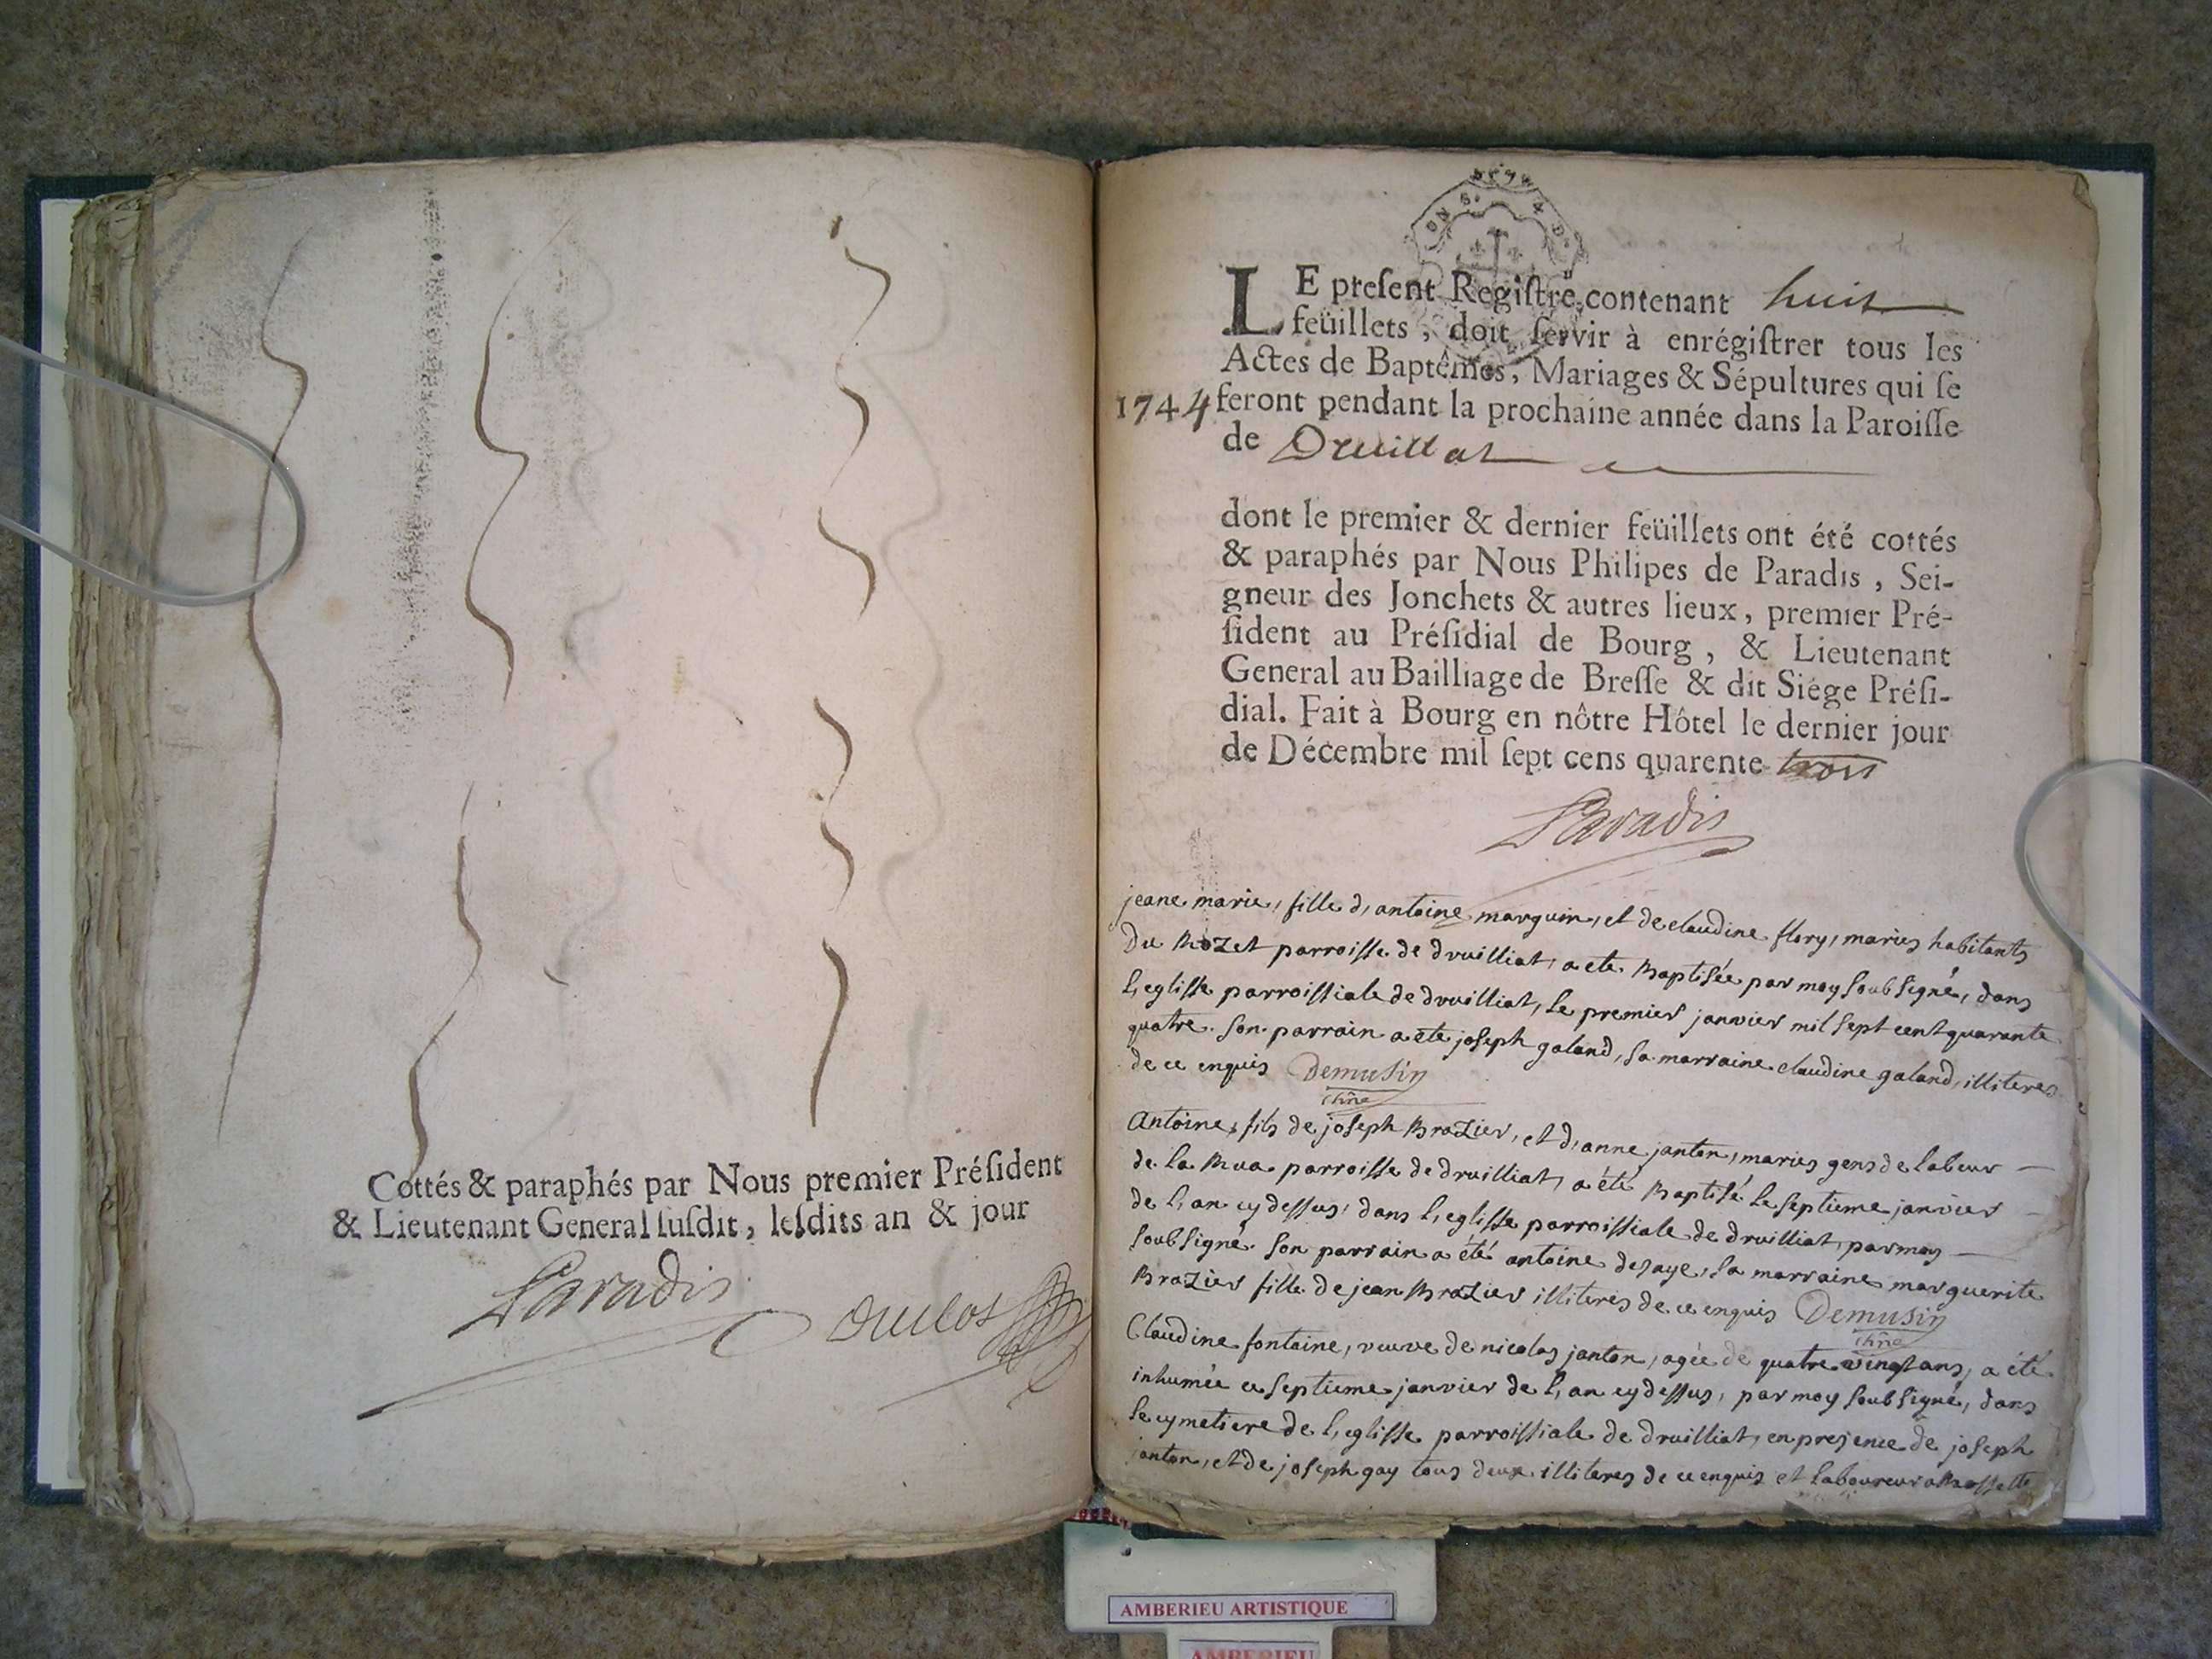 Cottés & paraphés par Nous premier Préſident
& Lieutenant General ſuſdit, leſdits an & jour
Paradis
Duclos
GEN
LE preſent Regiſtre contenant huit
feüillets, doit ſervir à enrégiſtrer tous les
Actes de Baptêmes, Mariages & Sépultures qui ſe
1744 feront pendant la prochaine année dans la Paroiſſe
de Druillat
dont le premier & dernier feüillets ont été cottés
& paraphés par Nous Philipes de Paradis, Sei-
gneur des Jonchets & autres lieux, premier Pré-
ſident au Préſidial de Bourg, & Lieutenant
General au Bailliage de Breſſe & dit Siége Préſi-
dial. Fait à Bourg en nôtre Hôtel le dernier jour
de Décembre mil ſept cens quarente trois
Paradis
jeane marie, fille d, antoine marguin, et de claudine flory, maries habitants
Du Rozet parroisse de druilliat, a ete Baptisée par moy soubsigné, dans
l, eglisse parroissiale de druilliat, le premier janvier mil sept cent quarante
quatre. son parrain a ete joseph galand, sa marraine claudine galand, illiteres
de ce enquis Demusin
Antoine, fils de joseph Brazier, et d, anne janton, maries gens de labeur
de la Rua parroisse de druilliat, a été Baptisé le septieme janvier
de l, an cy dessus, dans l, eglisse parroissiale de druilliat, par moy
soubsigné. son parrain a été antoine desaye, sa marraine marguerite
Brazier fille de jean Brazier illiteres de ce enquis Demusin
Claudine fontaine, veuve de nicolas janton, agée de quatre vingt ans, a été
inhumée ce septieme janvier de l, an cy dessus, par moy soubsigné, dans
le cymetiere de l, eglisse parroissiale de druilliat, en presence de joseph
janton, et de joseph gay tous deux illiteres de ce enquis et laboureur
AMBERIEU ARTISTIQUE
AMBERIEU